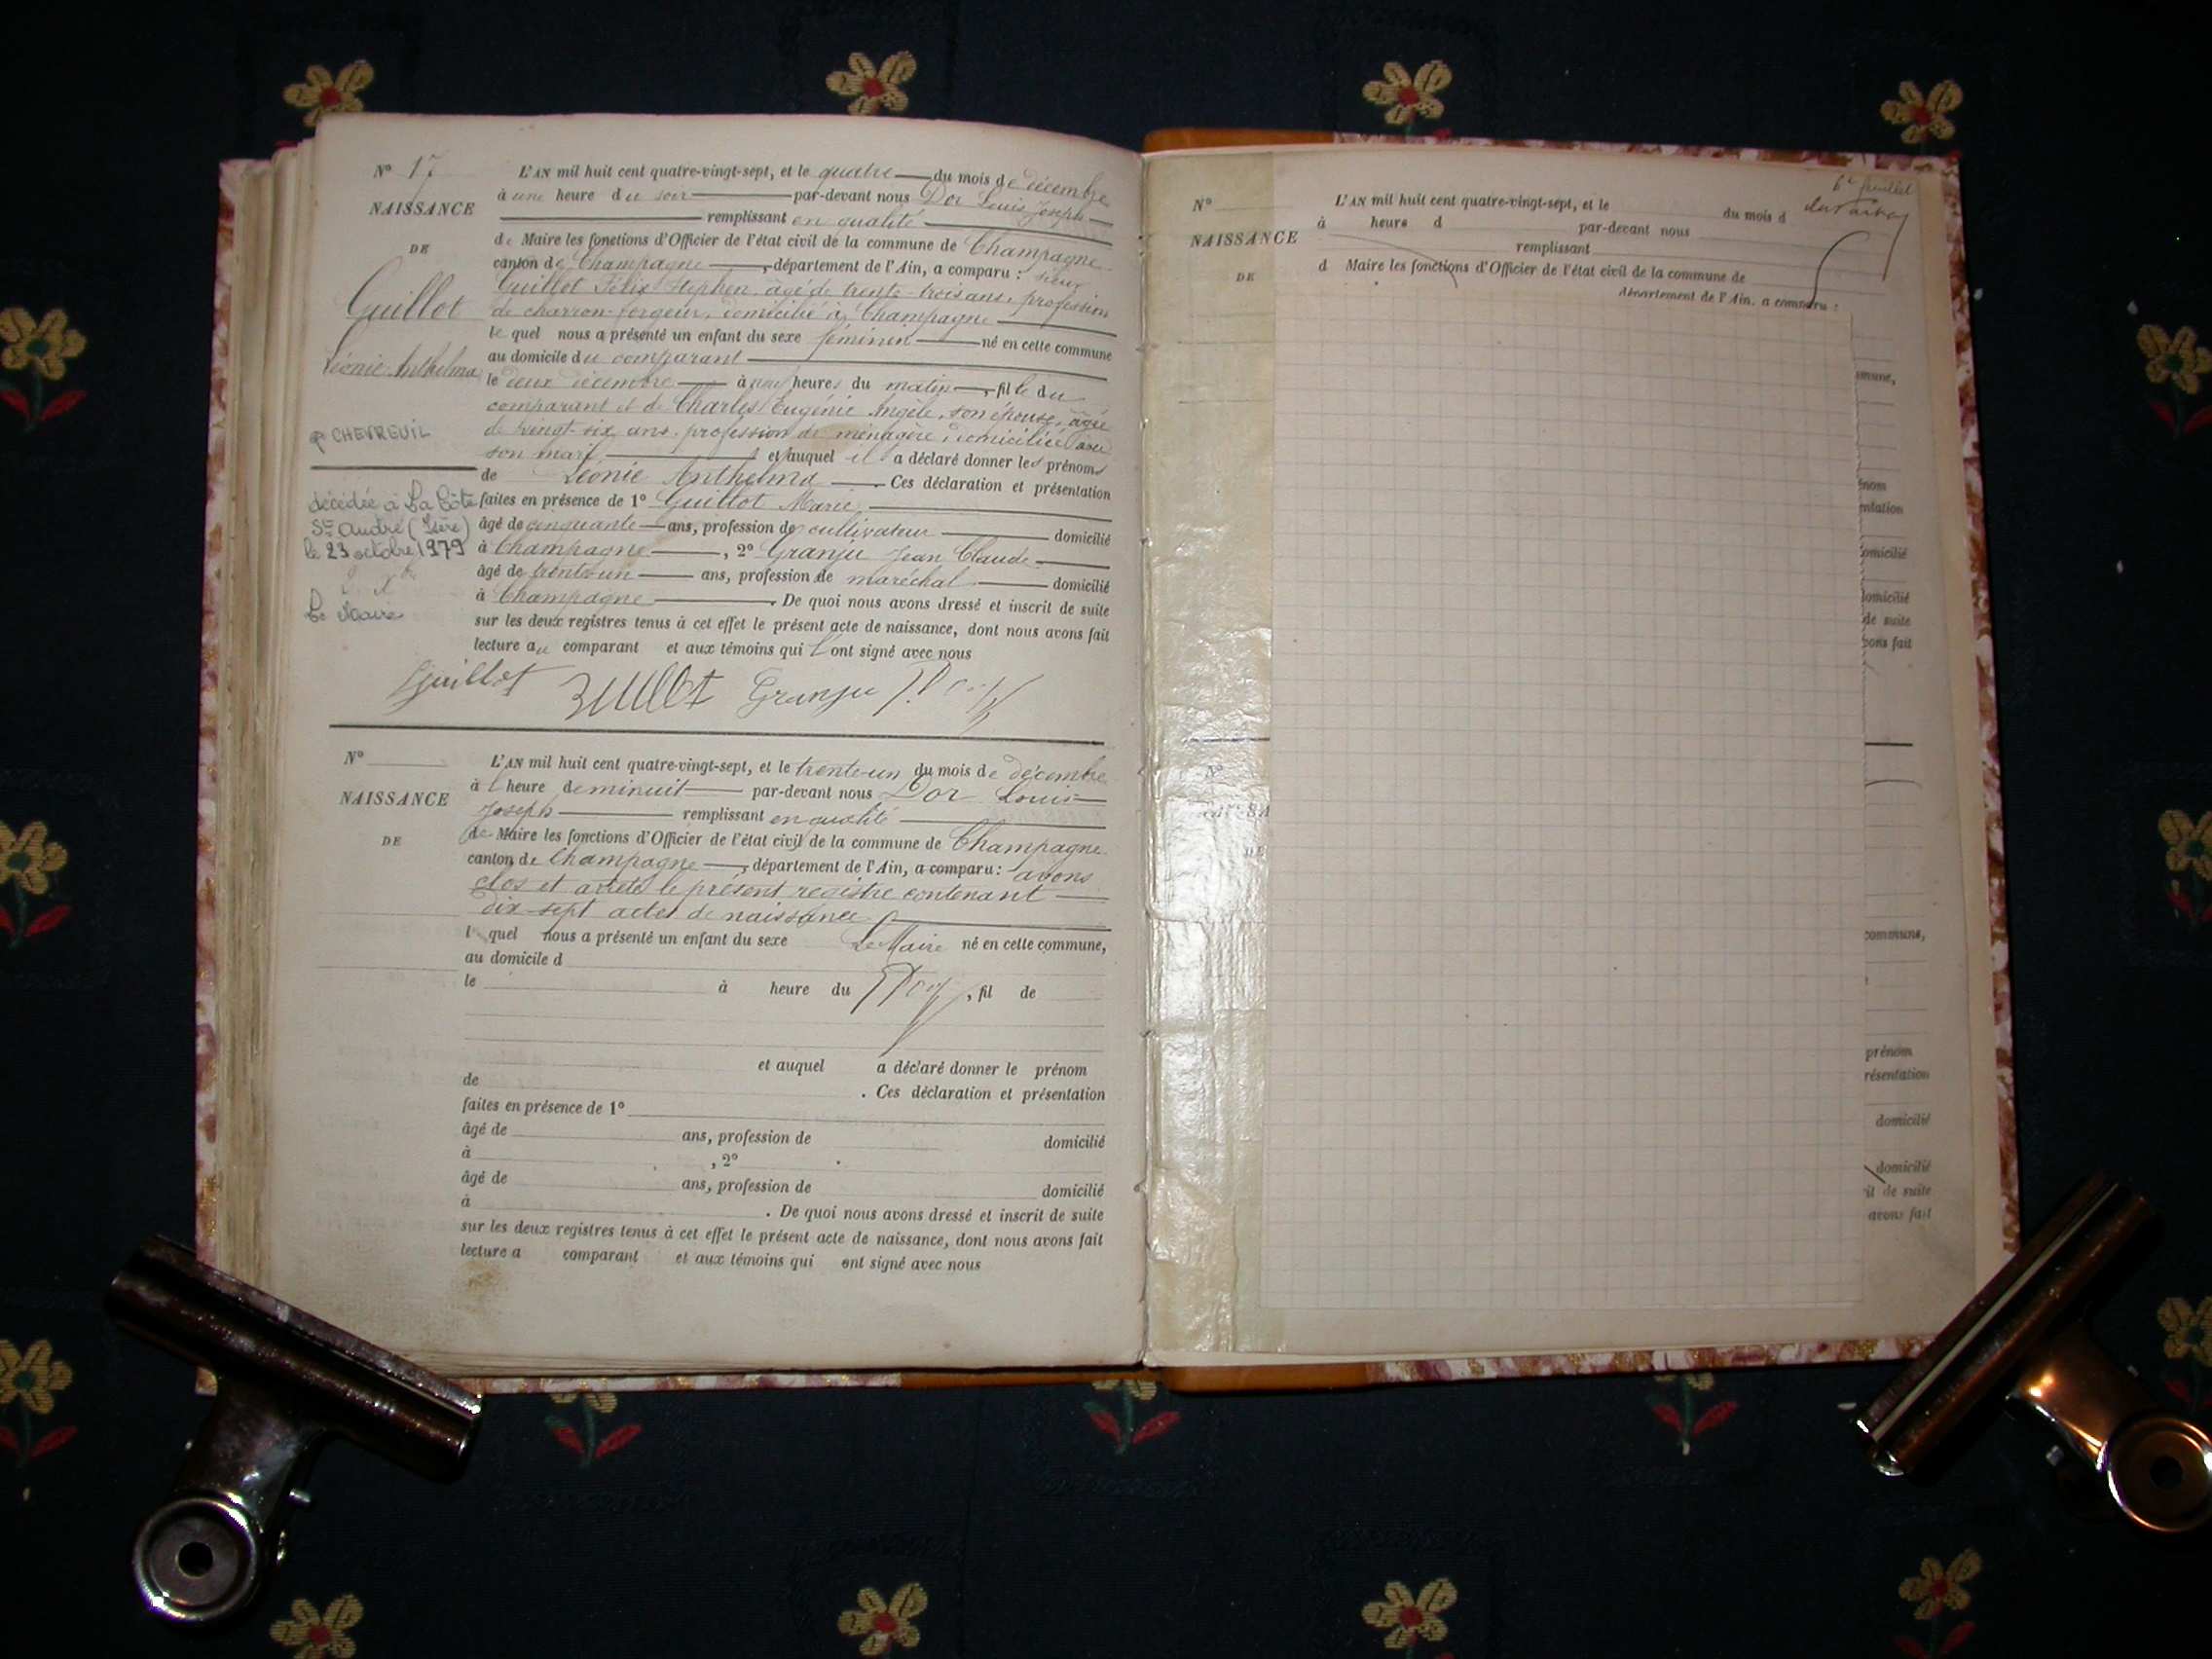 N° 17
NAISSANCE
DE
Guillot
Léonie Anthelma
CHEVREUIL
décédée à La Côte
St André (Isère)
le 23 octobre 1979
Le Maire
L'AN mil huit cent quatre-vingt-sept, et le quatre du mois de décembre
à une heure du soir par-devant nous Dor Louis Joseph
remplissant en qualité
de Maire les fonctions d'Officier de l'état civil de la commune de Champagne
canton de Champagne, département de l'Ain, a comparu : sieur
Guillot Félix Stephen, âgé de trente-trois ans, profession
de charron-forgeur, domicilié à Champagne
lequel nous a présenté un enfant du sexe féminin né en cette commune
au domicile du comparant
le deux décembre à neuf heures du matin, fille du
comparant et de Charles Eugénie Angèle, son épouse, âgée
de vingt-six ans, profession de ménagère, domiciliée avec
son mari et auquel il a déclaré donner les prénoms
de Léonie Anthelma. Ces déclaration et présentation
faites en présence de 1° Guillot Marie,
âgé de cinquante ans, profession de cultivateur domicilié
à Champagne, 2° Granju Jean Claude
âgé de trente-un ans, profession de maréchal domicilié
à Champagne. De quoi nous avons dressé et inscrit de suite
sur les deux registres tenus à cet effet le présent acte de naissance, dont nous avons fait
lecture au comparant et aux témoins qui l'ont signé avec nous
Guillot Guillot Granju Dor
N°
NAISSANCE
DE
L'AN mil huit cent quatre-vingt-sept, et le trente-un du mois de décembre
à l'heure de minuit par-devant nous Dor Louis
Joseph remplissant en qualité
de Maire les fonctions d'Officier de l'état civil de la commune de Champagne
canton de Champagne, département de l'Ain, a comparu : avons
clos et arrêté le présent registre contenant
dix-sept actes de naissance.
l quel nous a présenté un enfant du sexe Le Maire né en cette commune,
au domicile d
le à heure du Dor, fil de
et auquel a déclaré donner le prénom
de . Ces déclaration et présentation
faites en présence de 1°
âgé de ans, profession de domicilié
à , 2°
âgé de ans, profession de domicilié
à . De quoi nous avons dressé et inscrit de suite
sur les deux registres tenus à cet effet le présent acte de naissance, dont nous avons fait
lecture a comparant et aux témoins qui ont signé avec nous
N°
NAISSANCE
DE
L'AN mil huit cent quatre-vingt-sept, et le du mois d
à heure d par-devant nous
remplissant
d Maire les fonctions d'Officier de l'état civil de la commune de
département de l'Ain, a comparu :
6e feuillet
mmune,
énom
entation
omicilié
domicilié
de suite
vons fait
N°
DE
commune,
prénom
résentation
domicilié
domicilié
rit de suite
avons fait